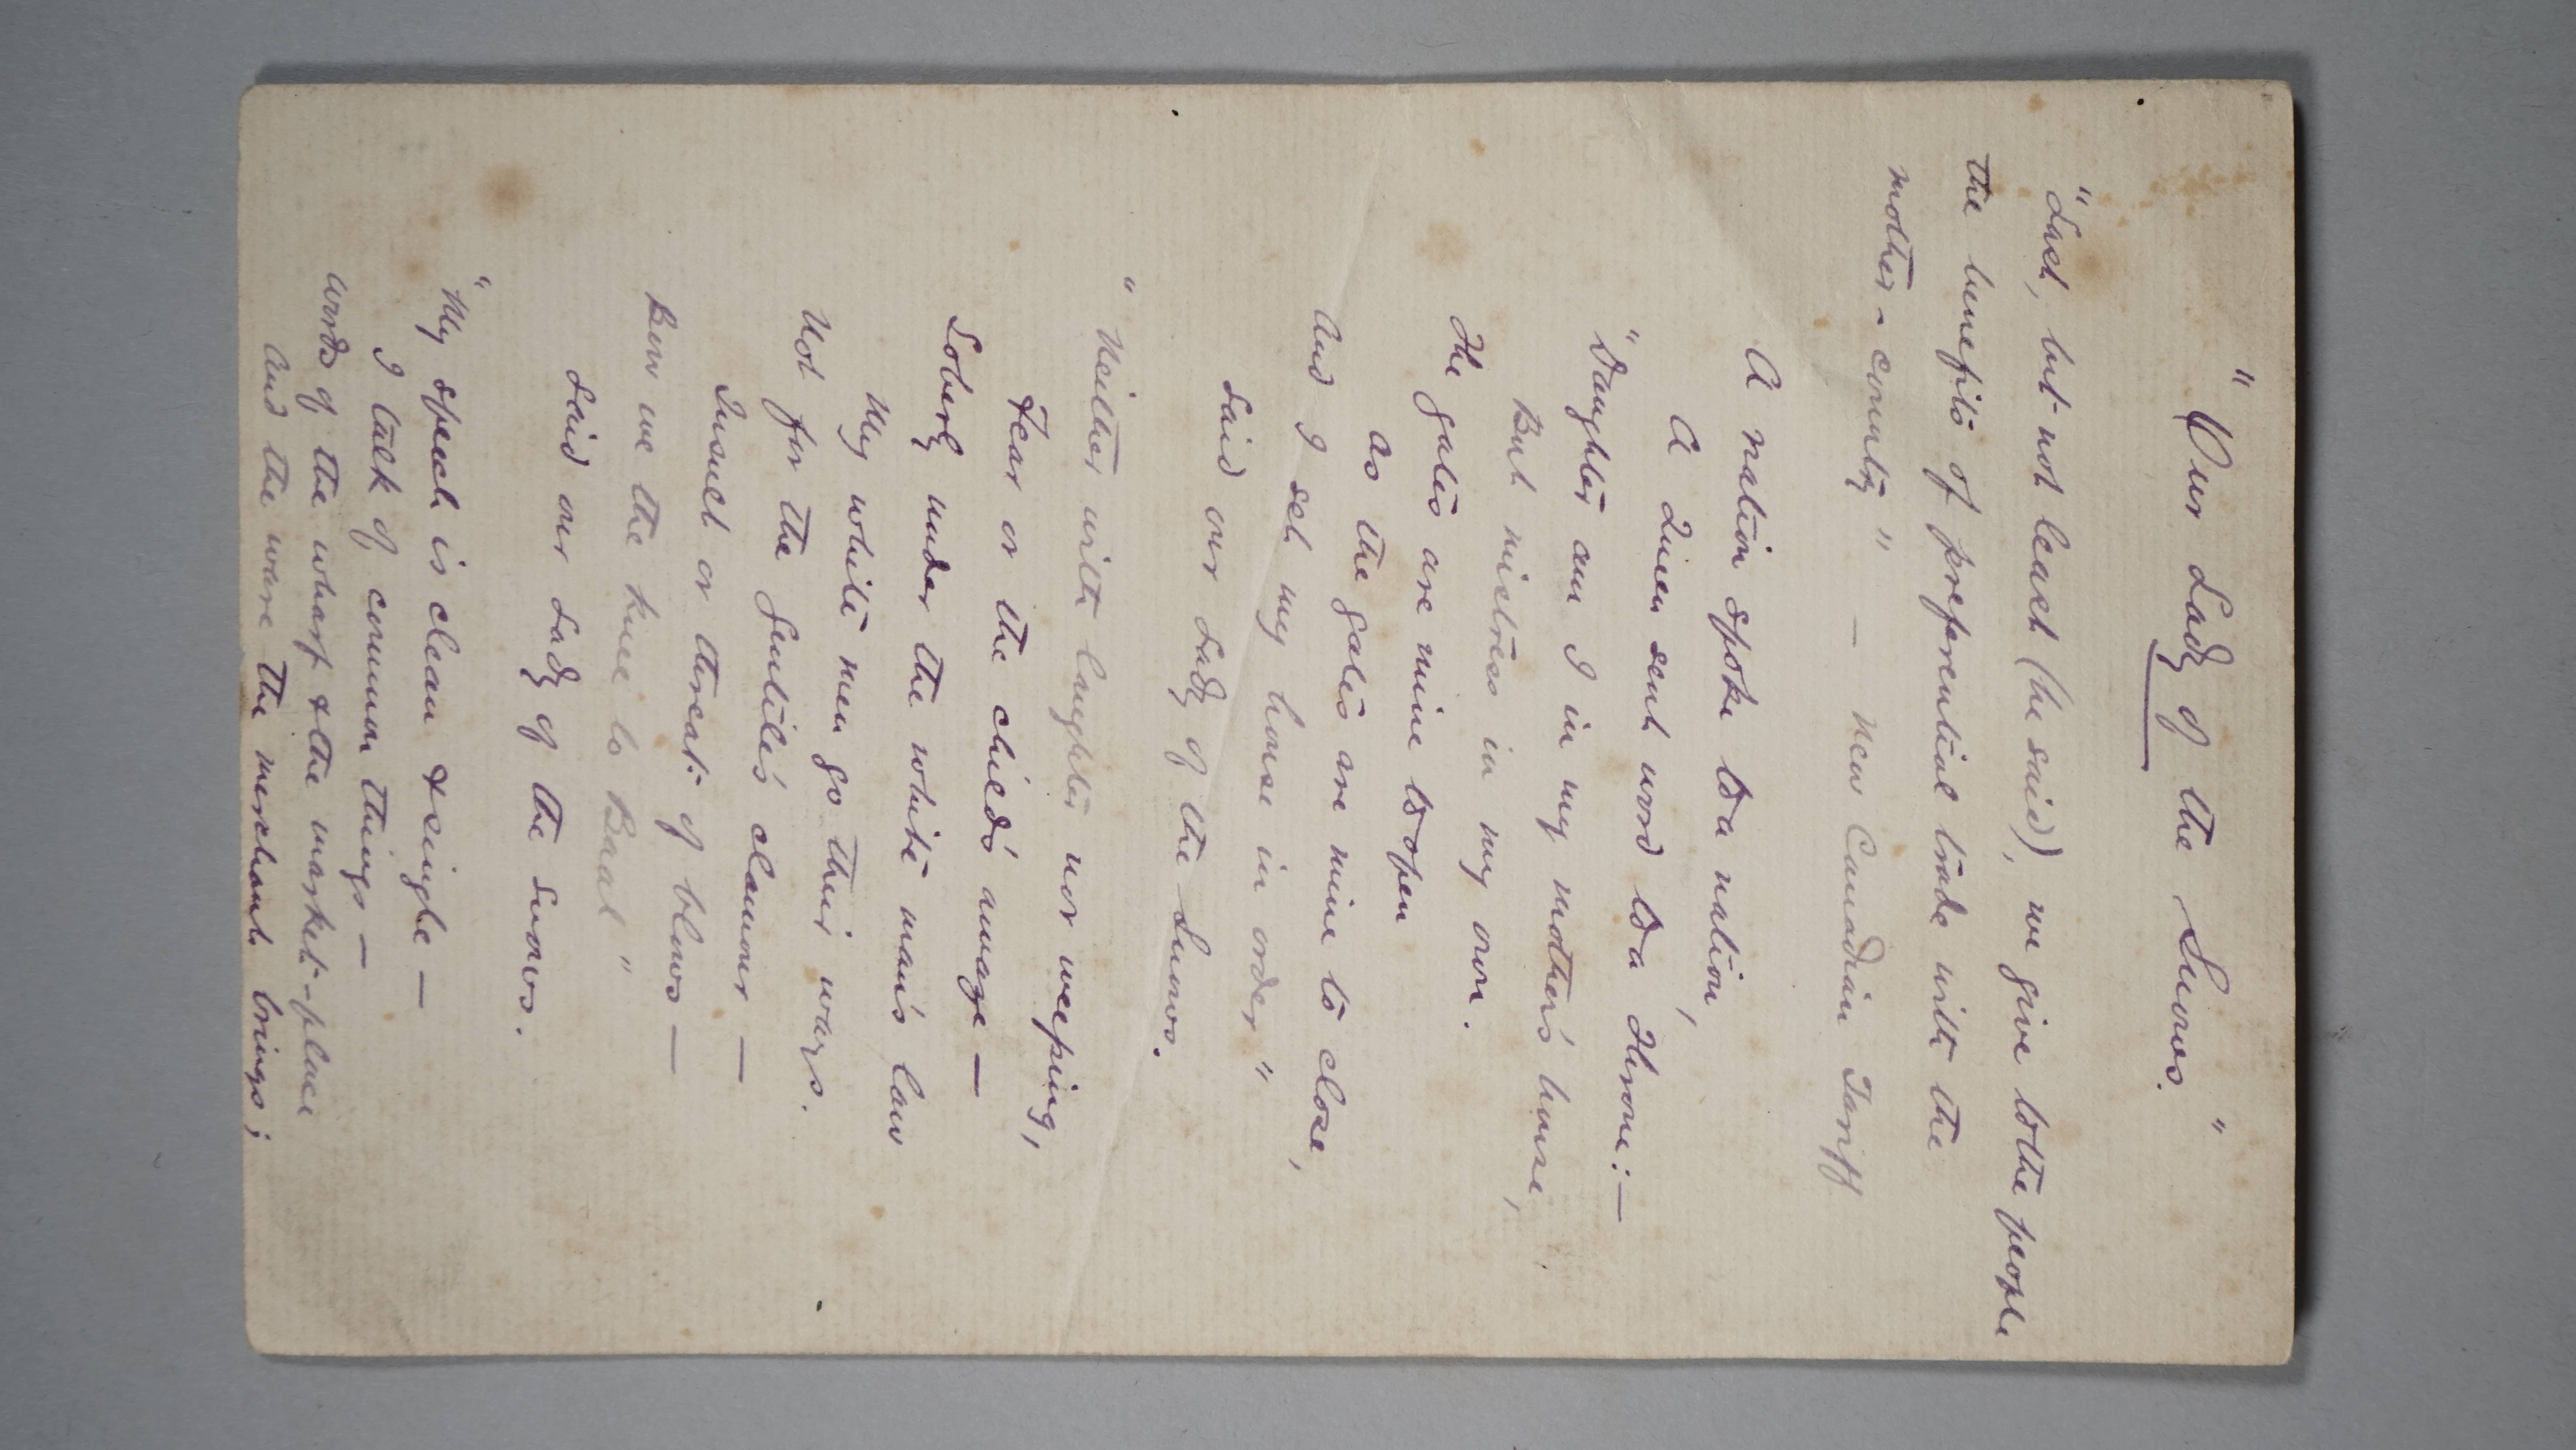 "Our Lady of the Snows."
"Last, but not least (he said), we give to the people
the benefits of preferential trade with the
mother-country" — New Canadian Tariff
A nation spoke to a nation,
A Queen sent word to a Throne:—
"Daughter am I in my mother's house,
But mistress in my own.
The gates are mine to open
As the gates are mine to close,
And I set my house in order"
Said our Lady of the Snows.
"Neither with laughter nor weeping,
Fear or the child's amaze —
Soberly under the white man's law
My white men go their ways.
Not for the Gentiles' clamour —
Insult or threat of blows —
Bow we the knee to Baal"
Said our Lady of the Snows.
"My speech is clean & single —
I talk of common things —
Words of the wharf & the market-place
And the ware the merchant brings;